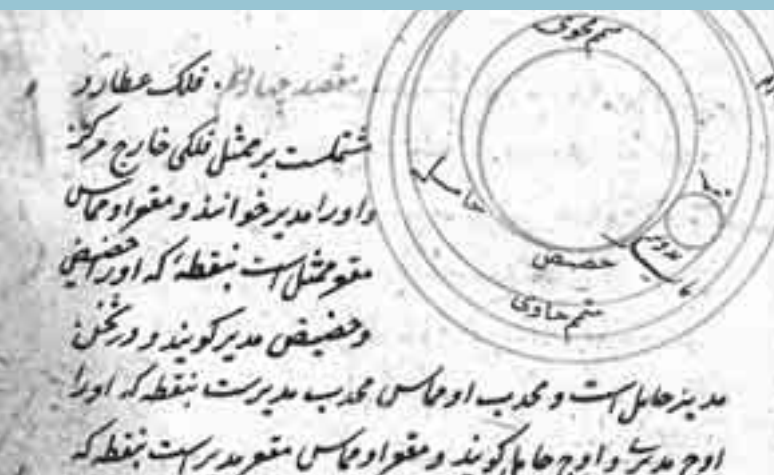 متمم محوی
مقصد چهارم فلک عطارد
مشتملست بر ممثل فلکی خارج مرکز
و اورا مدیر خوانند و مقعر او مماس
مقعر ممثل است بنقطهٔ که اورا حضیض
و حضیض مدیر کویند و در ثخن
حامل
تدویر
حضیض
متمم حاوی
مدیر حامل است و محدب او مماس محدب مدیرست بنقطه که اورا
اوج مدیر و اوج حامل کویند و مقعر او مماس مقعر مدیرست بنقطه که